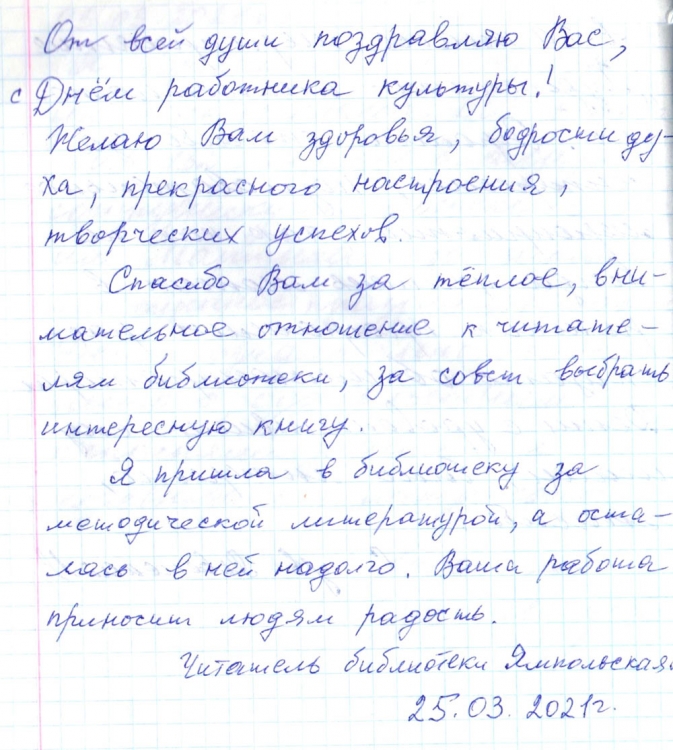 От всей души поздравляю Вас,
с Днём работника культуры!
Желаю Вам здоровья, бодрости ду-
ха, прекрасного настроения,
творческих успехов.
Спасибо Вам за тёплое, вни-
мательное отношение к читате-
лям библиотеки, за совет выбрать
интересную книгу.
Я пришла в библиотеку за
методической литературой, а оста-
лась в ней надолго. Ваша работа
приносит людям радость.
Читатель библиотеки Ямпольская.
25.03.2021г.